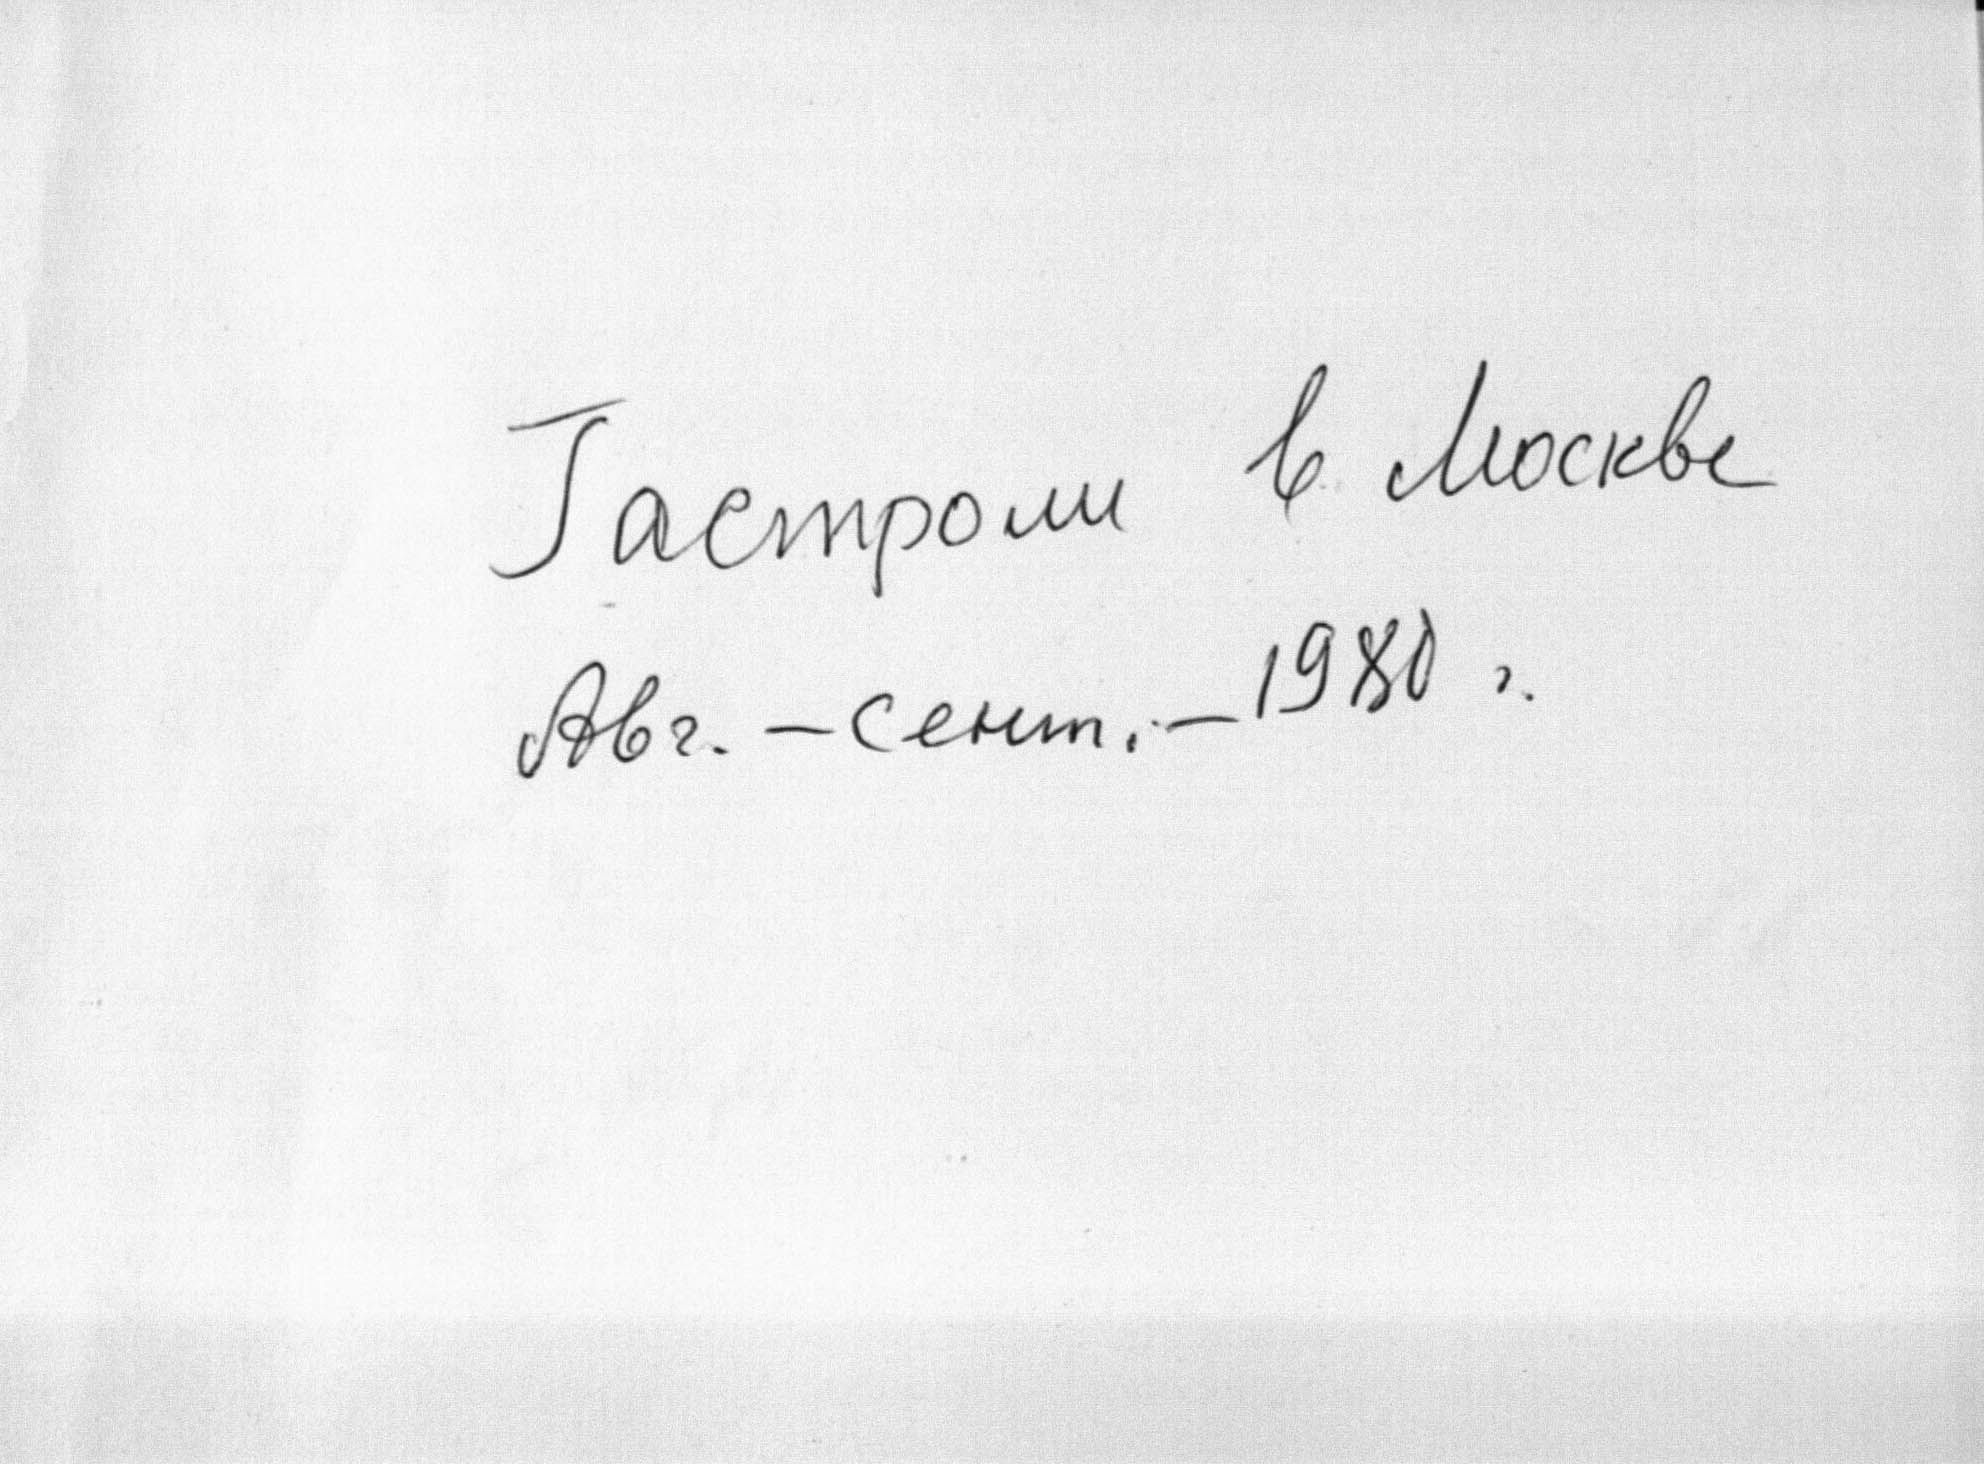 Гастроли в Москве
Авг. – сент. – 1980 г.